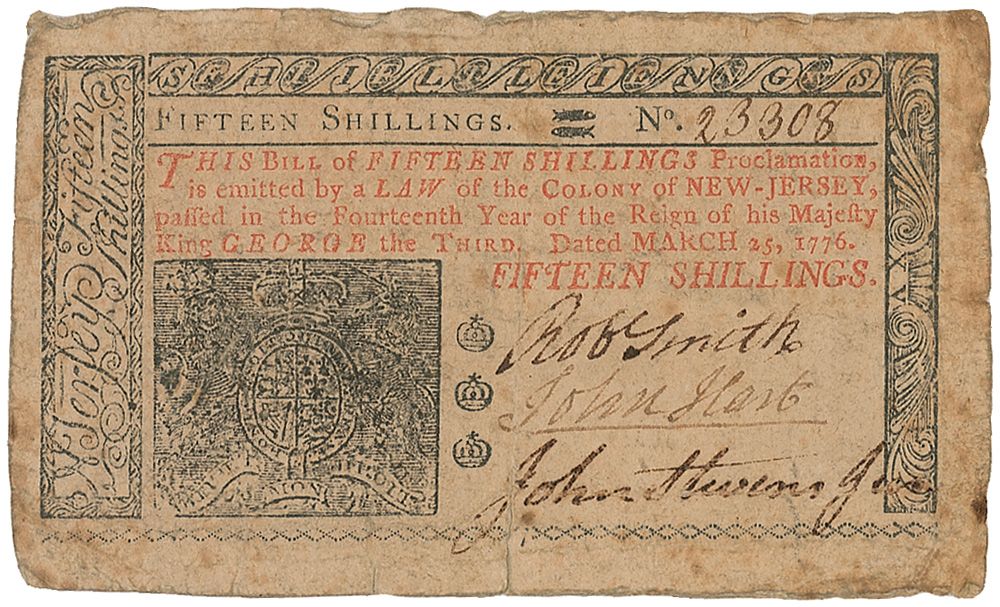 FIFTEEN SHILLINGS. No. 23308
THIS BILL of FIFTEEN SHILLINGS Proclamation,
is emitted by a LAW of the COLONY of NEW-JERSEY,
paſſed in the Fourteenth Year of the Reign of his Majeſty
King GEORGE the THIRD. Dated MARCH 25, 1776.
FIFTEEN SHILLINGS.
Rob Smith
John Hart
John Stevens Jun
Jerſey Fifteen
Shillings